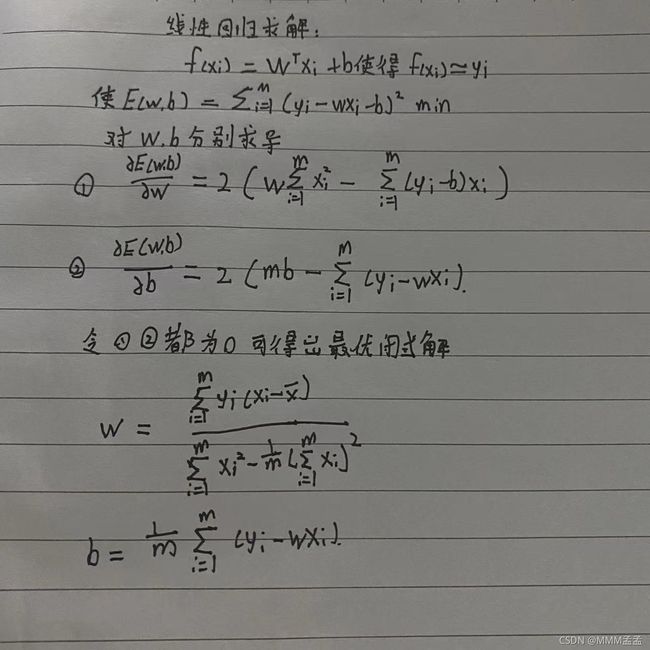 线性回归求解:
f(xi) = wᵀxi + b使得 f(xi)≃yi
使E(w,b) = ∑ᵢ₌₁ᵐ (yi-wxi-b)² min
对 w.b 分别求导
① ∂E(w,b)/∂w = 2 ( w∑ᵢ₌₁ᵐ xi² - ∑ᵢ₌₁ᵐ (yi-b)xi )
② ∂E(w,b)/∂b = 2 (mb - ∑ᵢ₌₁ᵐ (yi-wxi).
令 ①②都为0 可得出最优闭式解
w = ∑ᵢ₌₁ᵐ yi(xi-x̄) / ∑ᵢ₌₁ᵐ xi² - 1/m (∑ᵢ₌₁ᵐ xi)²
b = 1/m ∑ᵢ₌₁ᵐ (yi-wxi).
CSDN @MMM孟孟